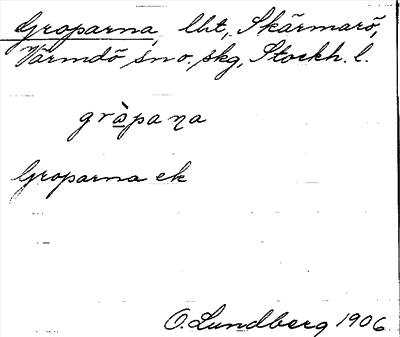 Groparna, lht, Skärmarö,
Värmdö sn o. skg, Stockh. l.
gràpaɳa
Groparna ek
O. Lundberg 1906